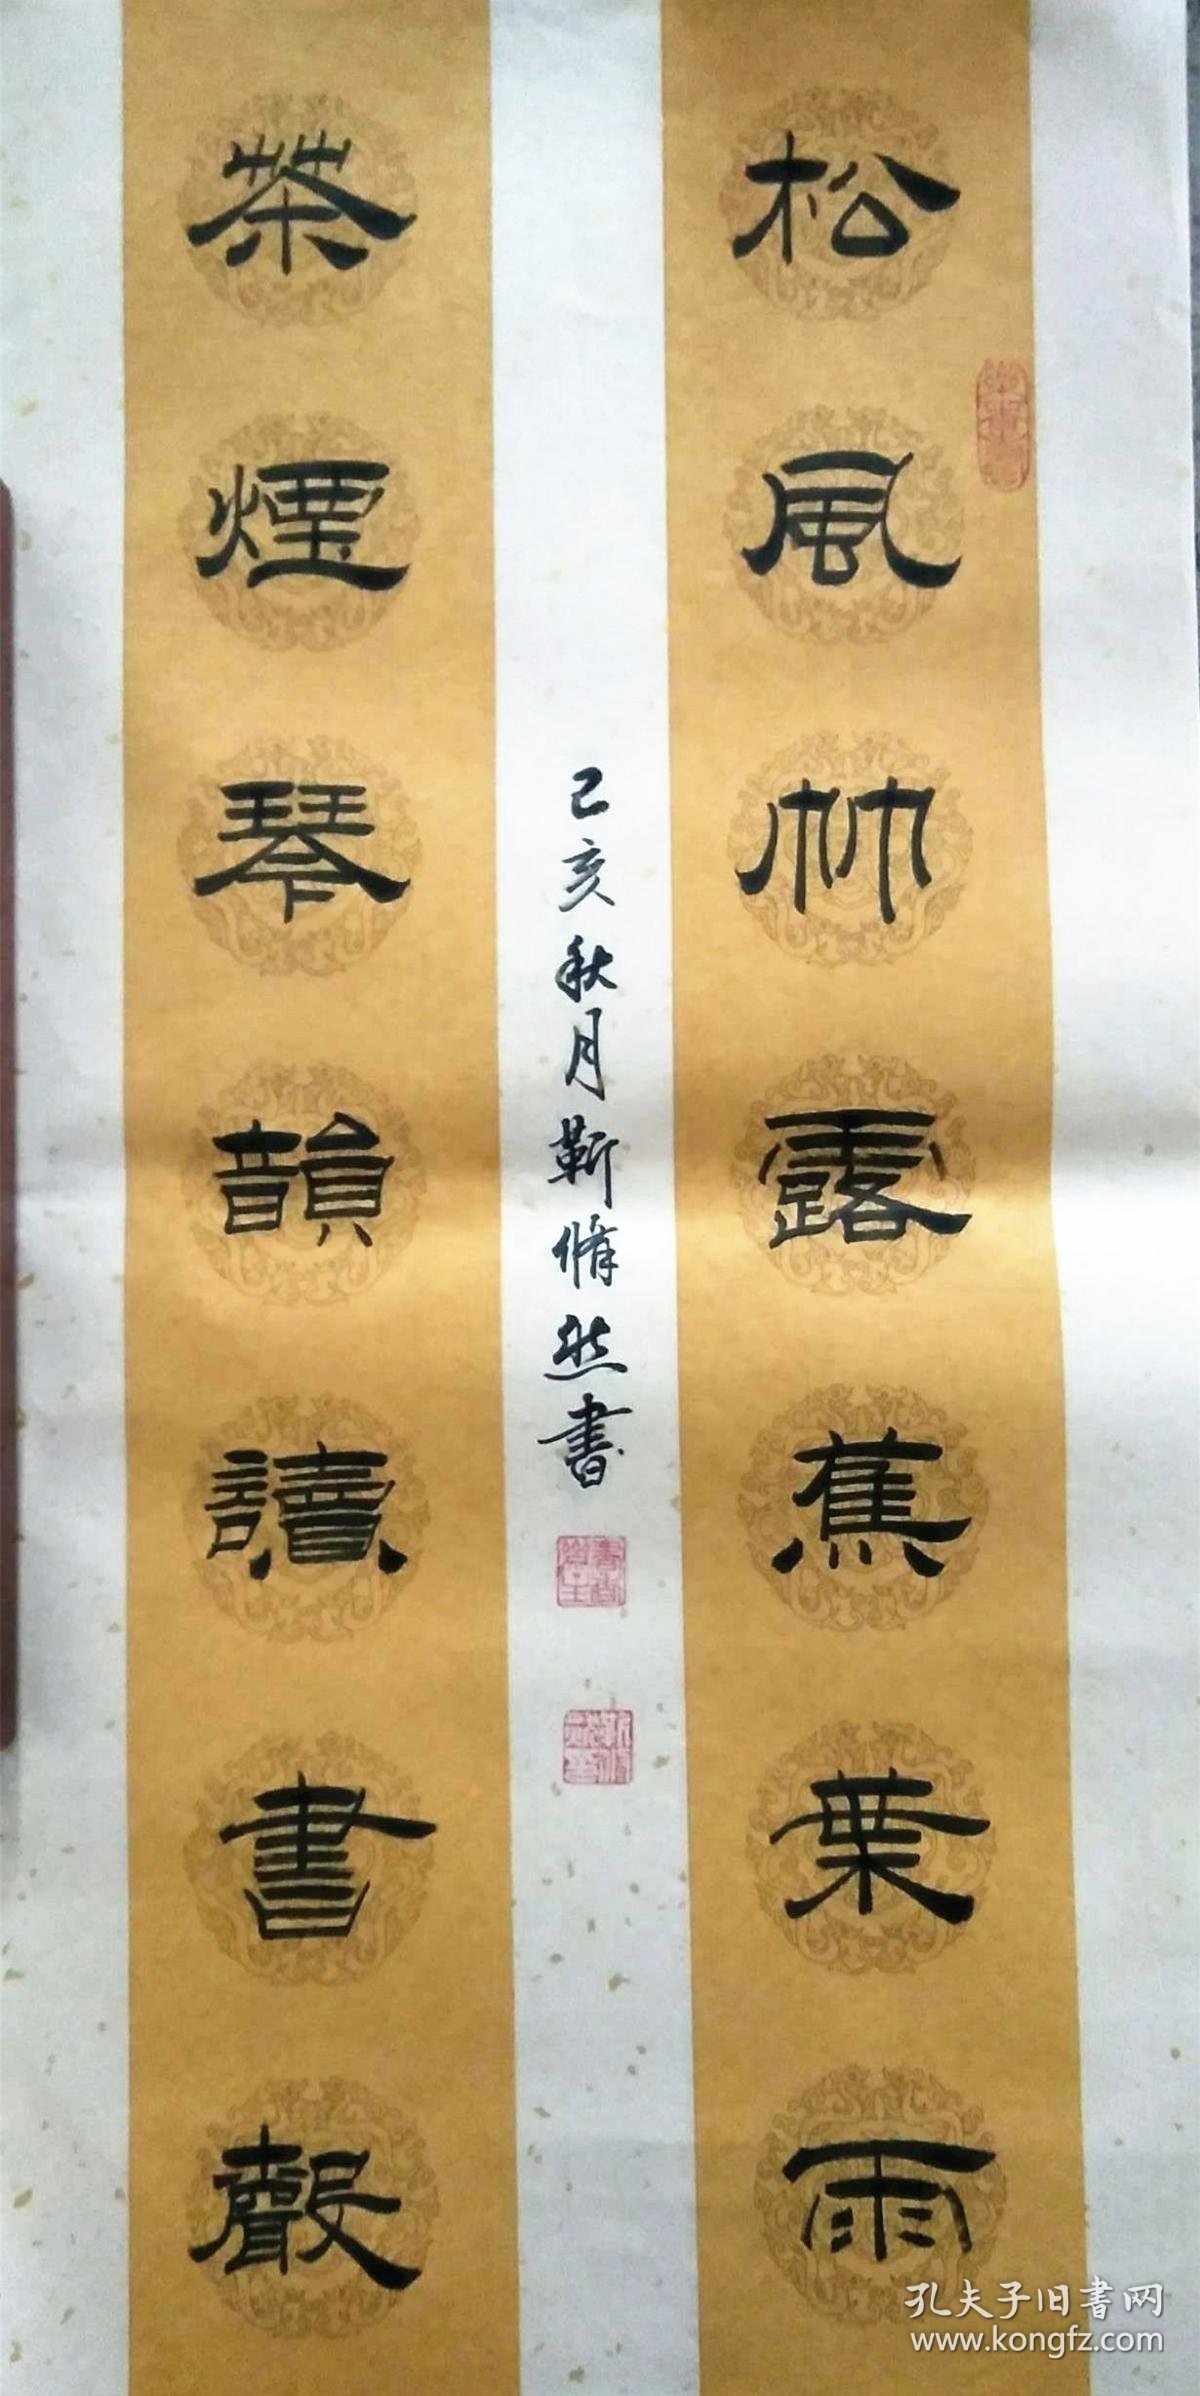 松風竹露蕉葉雨
茶煙琴韻讀書聲
己亥秋月靳脩然書
孔夫子旧書网
www.kongfz.com